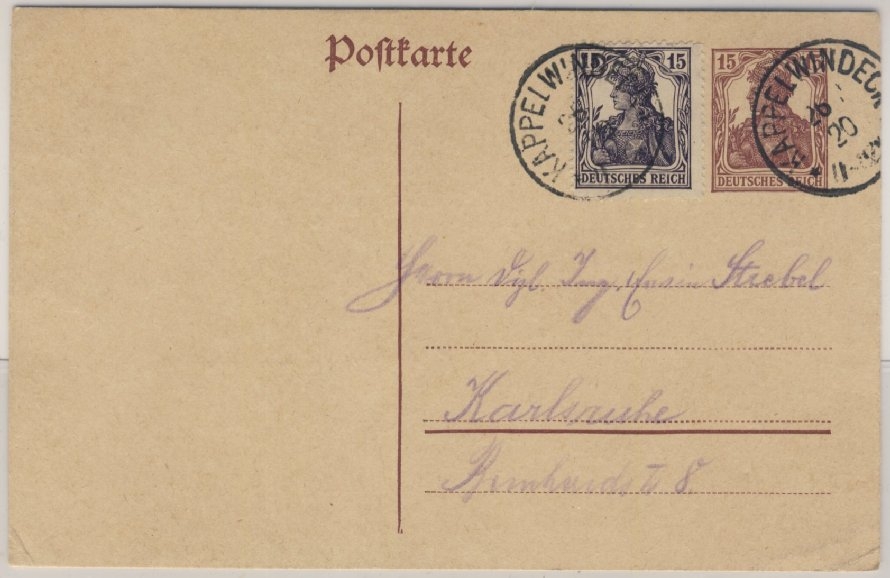 Postkarte
15 15
DEUTSCHES REICH
15
DEUTSCHES REICH
KAPPELWINDECK
KAPPELWINDECK
26
20
Herrn Dipl. Ing. Erwin Strebel
Karlsruhe
8